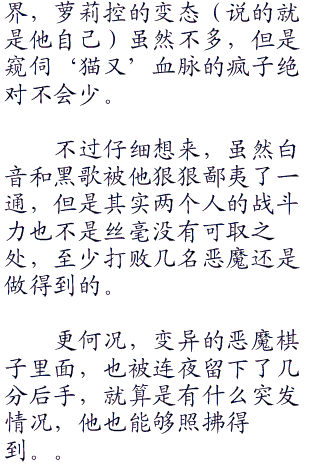 界，萝莉控的变态（说的就
是他自己）虽然不多，但是
窥伺‘猫又’血脉的疯子绝
对不会少。
不过仔细想来，虽然白
音和黑歌被他狠狠鄙夷了一
通，但是其实两个人的战斗
力也不是丝毫没有可取之
处，至少打败几名恶魔还是
做得到的。
更何况，变异的恶魔棋
子里面，也被连夜留下了几
分后手，就算是有什么突发
情况，他也能够照拂得
到。。